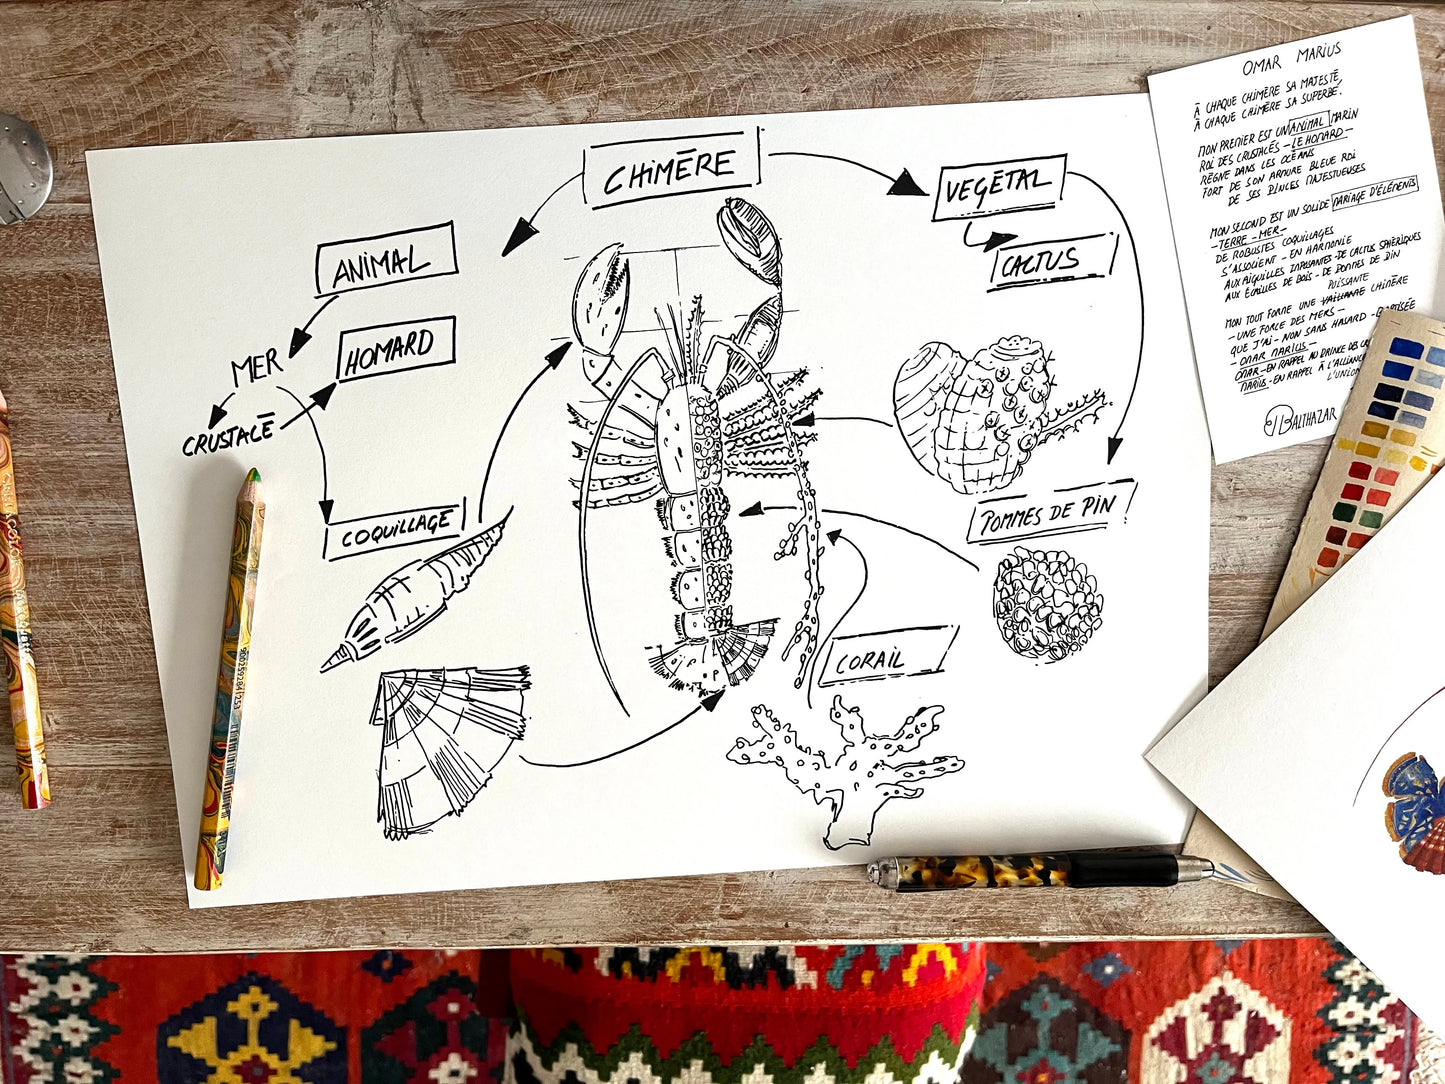 CHIMÈRE
VEGÉTAL
CACTUS
ANIMAL
MER
HOMARD
CRUSTACÉ
COQUILLAGE
POMMES DE PIN
CORAIL
9002592841253
OMAR MARIUS
À CHAQUE CHIMÈRE SA MAJESTÉ,
À CHAQUE CHIMÈRE SA SUPERBE.
MON PREMIER EST UN ANIMAL MARIN
ROI DES CRUSTACÉS - LE HOMARD -
RÈGNE DANS LES OCÉANS
FORT DE SON ARMURE BLEUE ROI
DE SES PINCES MAJESTUEUSES
MON SECOND EST UN SOLIDE MARIAGE D'ÉLÉMENTS
- TERRE - MER -
DE ROBUSTES COQUILLAGES
S'ASSOCIENT - EN HARMONIE
AUX AIGUILLES IMPOSANTES DE CACTUS SPHÉRIQUES
AUX ÉCAILLES DE BOIS - DE POMMES DE PIN
PUISSANTE
MON TOUT FORME UNE VAILLANTE CHIMÈRE
- UNE FORCE DES MERS -
QUE J'AI - NON SANS HASARD - BAPTISÉE
- OMAR MARIUS -
OMAR - EN RAPPEL AU PRINCE DES
MARIUS - EN RAPPEL À L'ALLIANCE
L'UNION
BALTHAZAR